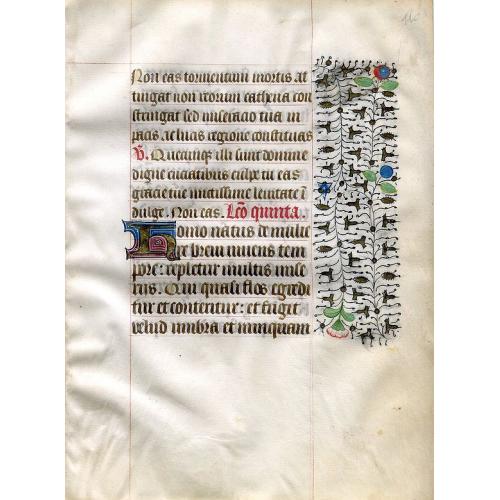 Non eas tormentum mortis at
tingat non reorum cathena con
stringat sed miseracio tua in
pacis ac lucis regione constituas
V. Quecunqz illi sunt domine
digne cruciatibus culpe tu eas
gracie tue mitissime lenitate
diluge. Non eas. Lco quinta.
Homo natus de mulie
re breui viuens tem
pore: repletur multis mise
riis. Qui quasi flos egredi
tur et conteritur: et fugit
velud umbra et nunquam